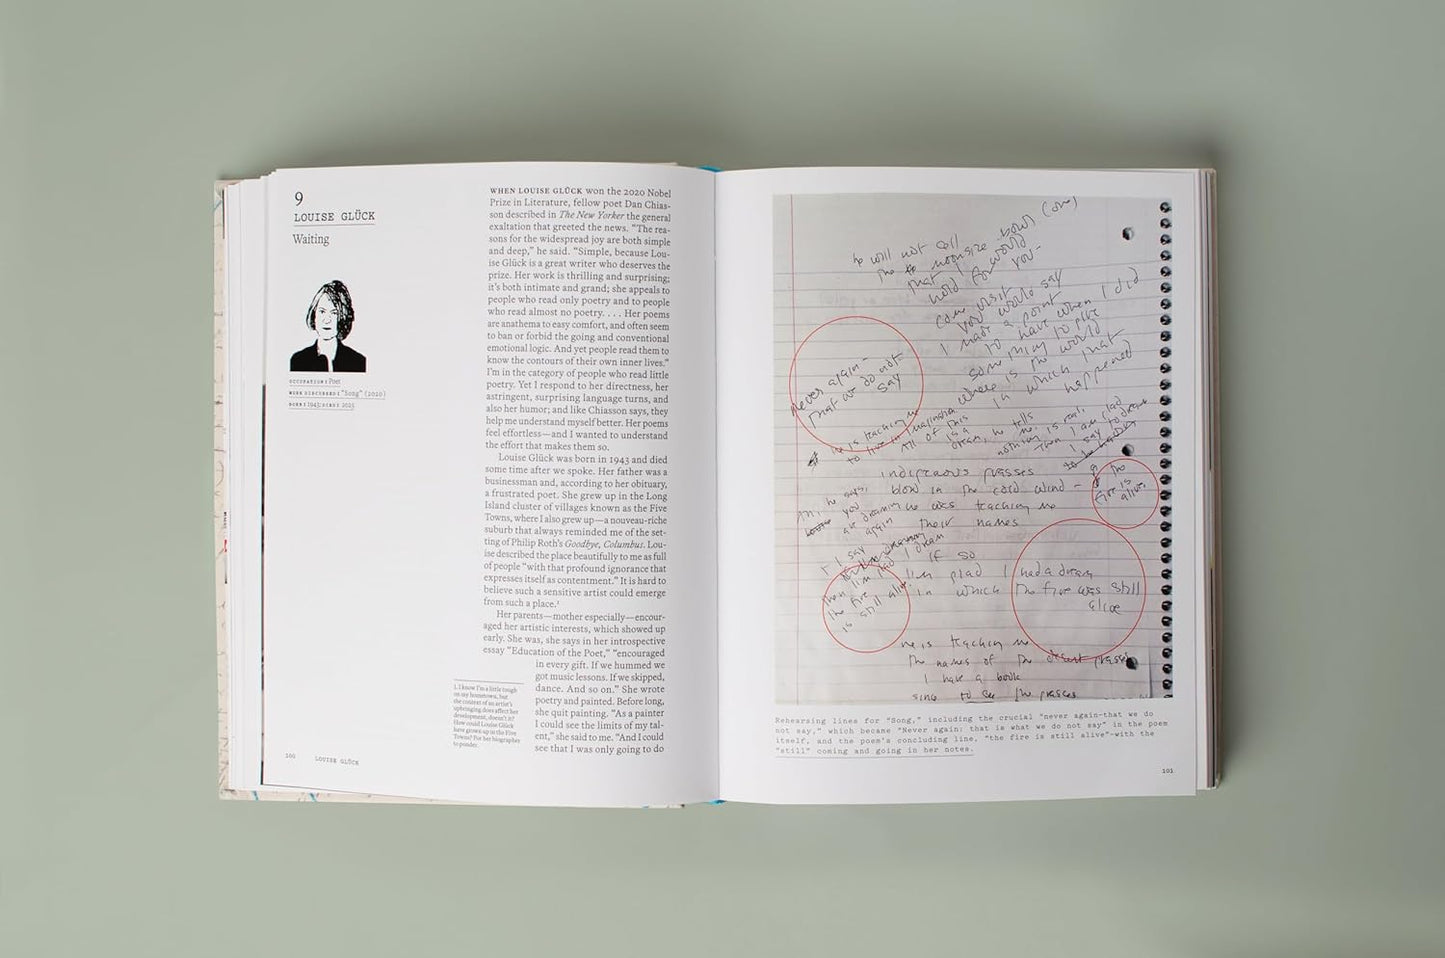 9
LOUISE GLÜCK
Waiting
OCCUPATION: Poet
WORK DISCUSSED: "Song" (2020)
BORN: 1943; DIED: 2023
WHEN LOUISE GLÜCK won the 2020 Nobel
Prize in Literature, fellow poet Dan Chias-
son described in The New Yorker the general
exaltation that greeted the news. "The rea-
sons for the widespread joy are both simple
and deep," he said. "Simple, because Lou-
ise Glück is a great writer who deserves the
prize. Her work is thrilling and surprising;
it's both intimate and grand; she appeals to
people who read only poetry and to people
who read almost no poetry. . . . Her poems
are anathema to easy comfort, and often seem
to ban or forbid the going and conventional
emotional logic. And yet people read them to
know the contours of their own inner lives."
I'm in the category of people who read little
poetry. Yet I respond to her directness, her
astringent, surprising language turns, and
also her humor; and like Chiasson says, they
help me understand myself better. Her poems
feel effortless—and I wanted to understand
the effort that makes them so.
Louise Glück was born in 1943 and died
some time after we spoke. Her father was a
businessman and, according to her obituary,
a frustrated poet. She grew up in the Long
Island cluster of villages known as the Five
Towns, where I also grew up—a nouveau-riche
suburb that always reminded me of the set-
ting of Philip Roth's Goodbye, Columbus. Lou-
ise described the place beautifully to me as full
of people "with that profound ignorance that
expresses itself as contentment." It is hard to
believe such a sensitive artist could emerge
from such a place.¹
Her parents—mother especially—encour-
aged her artistic interests, which showed up
early. She was, she says in her introspective
essay "Education of the Poet," "encouraged
in every gift. If we hummed we
got music lessons. If we skipped,
dance. And so on." She wrote
poetry and painted. Before long,
she quit painting. "As a painter
I could see the limits of my tal-
ent," she said to me. "And I could
see that I was only going to do
1. I know I'm a little rough
on my hometown, but
the context of an artist's
upbringing does affect her
development, doesn't it?
How could Louise Glück
have grown up in the Five
Towns? For her biographer
to ponder.
100 LOUISE GLÜCK
he will not sell
the moonsize bowls (one)
that I would
hold for you—
come visit
you would say
I made a point
to have when I did
something to give
where is the world
in which that
happened
never again—
that we do not
say
he is teaching me
to live in imagination
all of this
is a
dream, he tells
me, is real,
then I am glad
I say to dream
indigenous grasses
blow in the cold wind—
the
fire is
alive
Ah, he says,
you
are dreaming
again
he was teaching me
their names
& I say
then I'm glad I dream
the fire
is still alive
if so
I'm glad I had a dream
in which the fire was still
alive
he is teaching me
the names of the desert grasses
I have a book
since to see the grasses
Rehearsing lines for "Song," including the crucial "never again—that we do
not say," which became "Never again: that is what we do not say" in the poem
itself, and the poem's concluding line, "the fire is still alive"—with the
"still" coming and going in her notes.
101